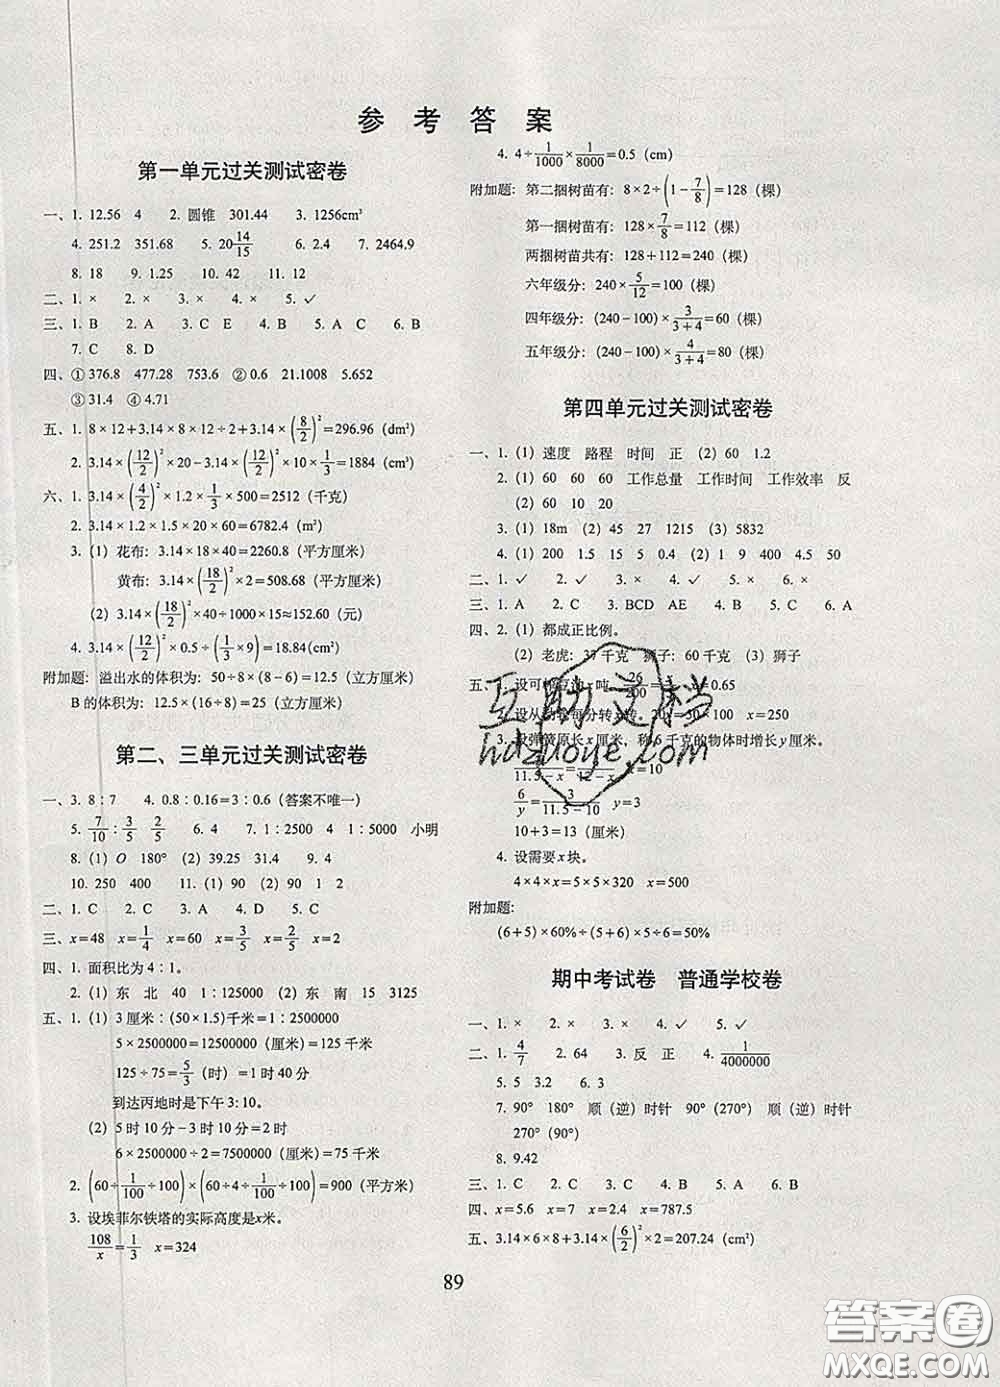 参 考 答 案
第一单元过关测试密卷
一、1. 12.56 4 2. 圆锥 301.44 3. 1256cm³
4. 251.2 351.68 5. 20 14/15 6. 2.4 7. 2464.9
8. 18 9. 1.25 10. 42 11. 12
二、1. × 2. × 3. × 4. × 5. ✓
三、1. B 2. A 3. C 4. B 5. A 6. B
7. C 8. D
四、① 376.8 477.28 753.6 ② 0.6 21.1008 5.652
③ 31.4 ④ 4.71
五、1. 8×12+3.14×8×12÷2+3.14×(8/2)²=296.96 (dm²)
2. 3.14×(12/2)²×20-3.14×(12/2)²×10×1/3=1884 (cm³)
六、1. 3.14×(4/2)²×1.2×1/3×500=2512 (千克)
2. 3.14×1.2×1.5×20×60=6782.4 (m²)
3. (1) 花布: 3.14×18×40=2260.8 (平方厘米)
黄布: 3.14×(18/2)²×2=508.68 (平方厘米)
(2) 3.14×(18/2)²×40÷1000×15≈152.60 (元)
4. 3.14×(12/2)²×0.5÷(1/3×9)=18.84(cm²)
附加题: 溢出水的体积为: 50÷8×(8-6)=12.5 (立方厘米)
B的体积为: 12.5×(16÷8)=25 (立方厘米)
第二、三单元过关测试密卷
一、3. 8∶7 4. 0.8∶0.16=3∶0.6 (答案不唯一)
5. 7/10∶3/5 2/5 6. 4 7. 1∶2500 4 1∶5000 小明
8. (1) O 180° (2) 39.25 31.4 9. 4
10. 250 400 11. (1) 90 (2) 90 1 2
二、1. C 2. C 3. A 4. D 5. C
三、x=48 x=1/4 x=60 x=3/5 x=2/5 x=2
四、1. 面积比为4∶1。
2. (1) 东 北 40 1∶125000 (2) 东 南 15 3125
五、1. (1) 3厘米∶(50×1.5)千米=1∶2500000
5×2500000=12500000 (厘米)=125千米
125÷75=5/3 (时) =1时40分
到达丙地时是下午3:10。
(2) 5时10分-3时10分=2时
6×2500000÷2=7500000 (厘米)=75千米
2. (60÷1/100÷100)×(60÷4÷1/100÷100)=900 (平方米)
3. 设埃菲尔铁塔的实际高度是x米。
108/x=1/3 x=324
4. 4÷1/1000×1/8000=0.5 (cm)
附加题: 第二捆树苗有: 8×2÷(1-7/8)=128 (棵)
第一捆树苗有: 128×7/8=112 (棵)
两捆树苗共有: 128+112=240 (棵)
六年级分: 240×5/12=100 (棵)
四年级分: (240-100)×3/(3+4)=60 (棵)
五年级分: (240-100)×4/(3+4)=80 (棵)
第四单元过关测试密卷
一、1. (1) 速度 路程 时间 正 (2) 60 1.2
2. (1) 60 60 60 工作总量 工作时间 工作效率 反
(2) 60 10 20
3. (1) 18m (2) 45 27 1215 (3) 5832
4. (1) 200 1.5 15 5 0.4 (2) 1 9 400 4.5 50
二、1. ✓ 2. ✓ 3. × 4. ✓ 5. × 6. ×
三、1. A 2. C 3. BCD AE 4. B 5. C 6. A
四、2. (1) 都成正比例。
(2) 老虎: 37千克 狮子: 60千克 (3) 狮子
五、1. 设可榨豆油x吨 26/200= x=0.65
2. 设从动轮每分转x转。 20x=50×100 x=250
3. 设弹簧原长x厘米, 称6千克的物体时增长y厘米。
11.5-x = 12-x x=10
6/y=3/(11.5-10) y=3
10+3=13 (厘米)
4. 设需要x块。
4×4×x=5×5×320 x=500
附加题:
(6+5)×60%÷(5+6)×5÷6=50%
期中考试卷 普通学校卷
一、1. × 2. × 3. × 4. ✓ 5. ✓
二、1. 4/7 2. 64 3. 反 正 4. 1/4000000
5. 5 3.2 6. 3
7. 90° 180° 顺 (逆) 时针 90° (270°) 顺 (逆) 时针
270° (90°)
8. 9.42
三、1. C 2. C 3. A 4. B 5. C
四、x=5.6 x=7 x=2.4 x=787.5
五、3.14×6×8+3.14×(6/2)²×2=207.24 (cm²)
89
互助文档
hdzuoye.com
答案圈
MXQE.COM